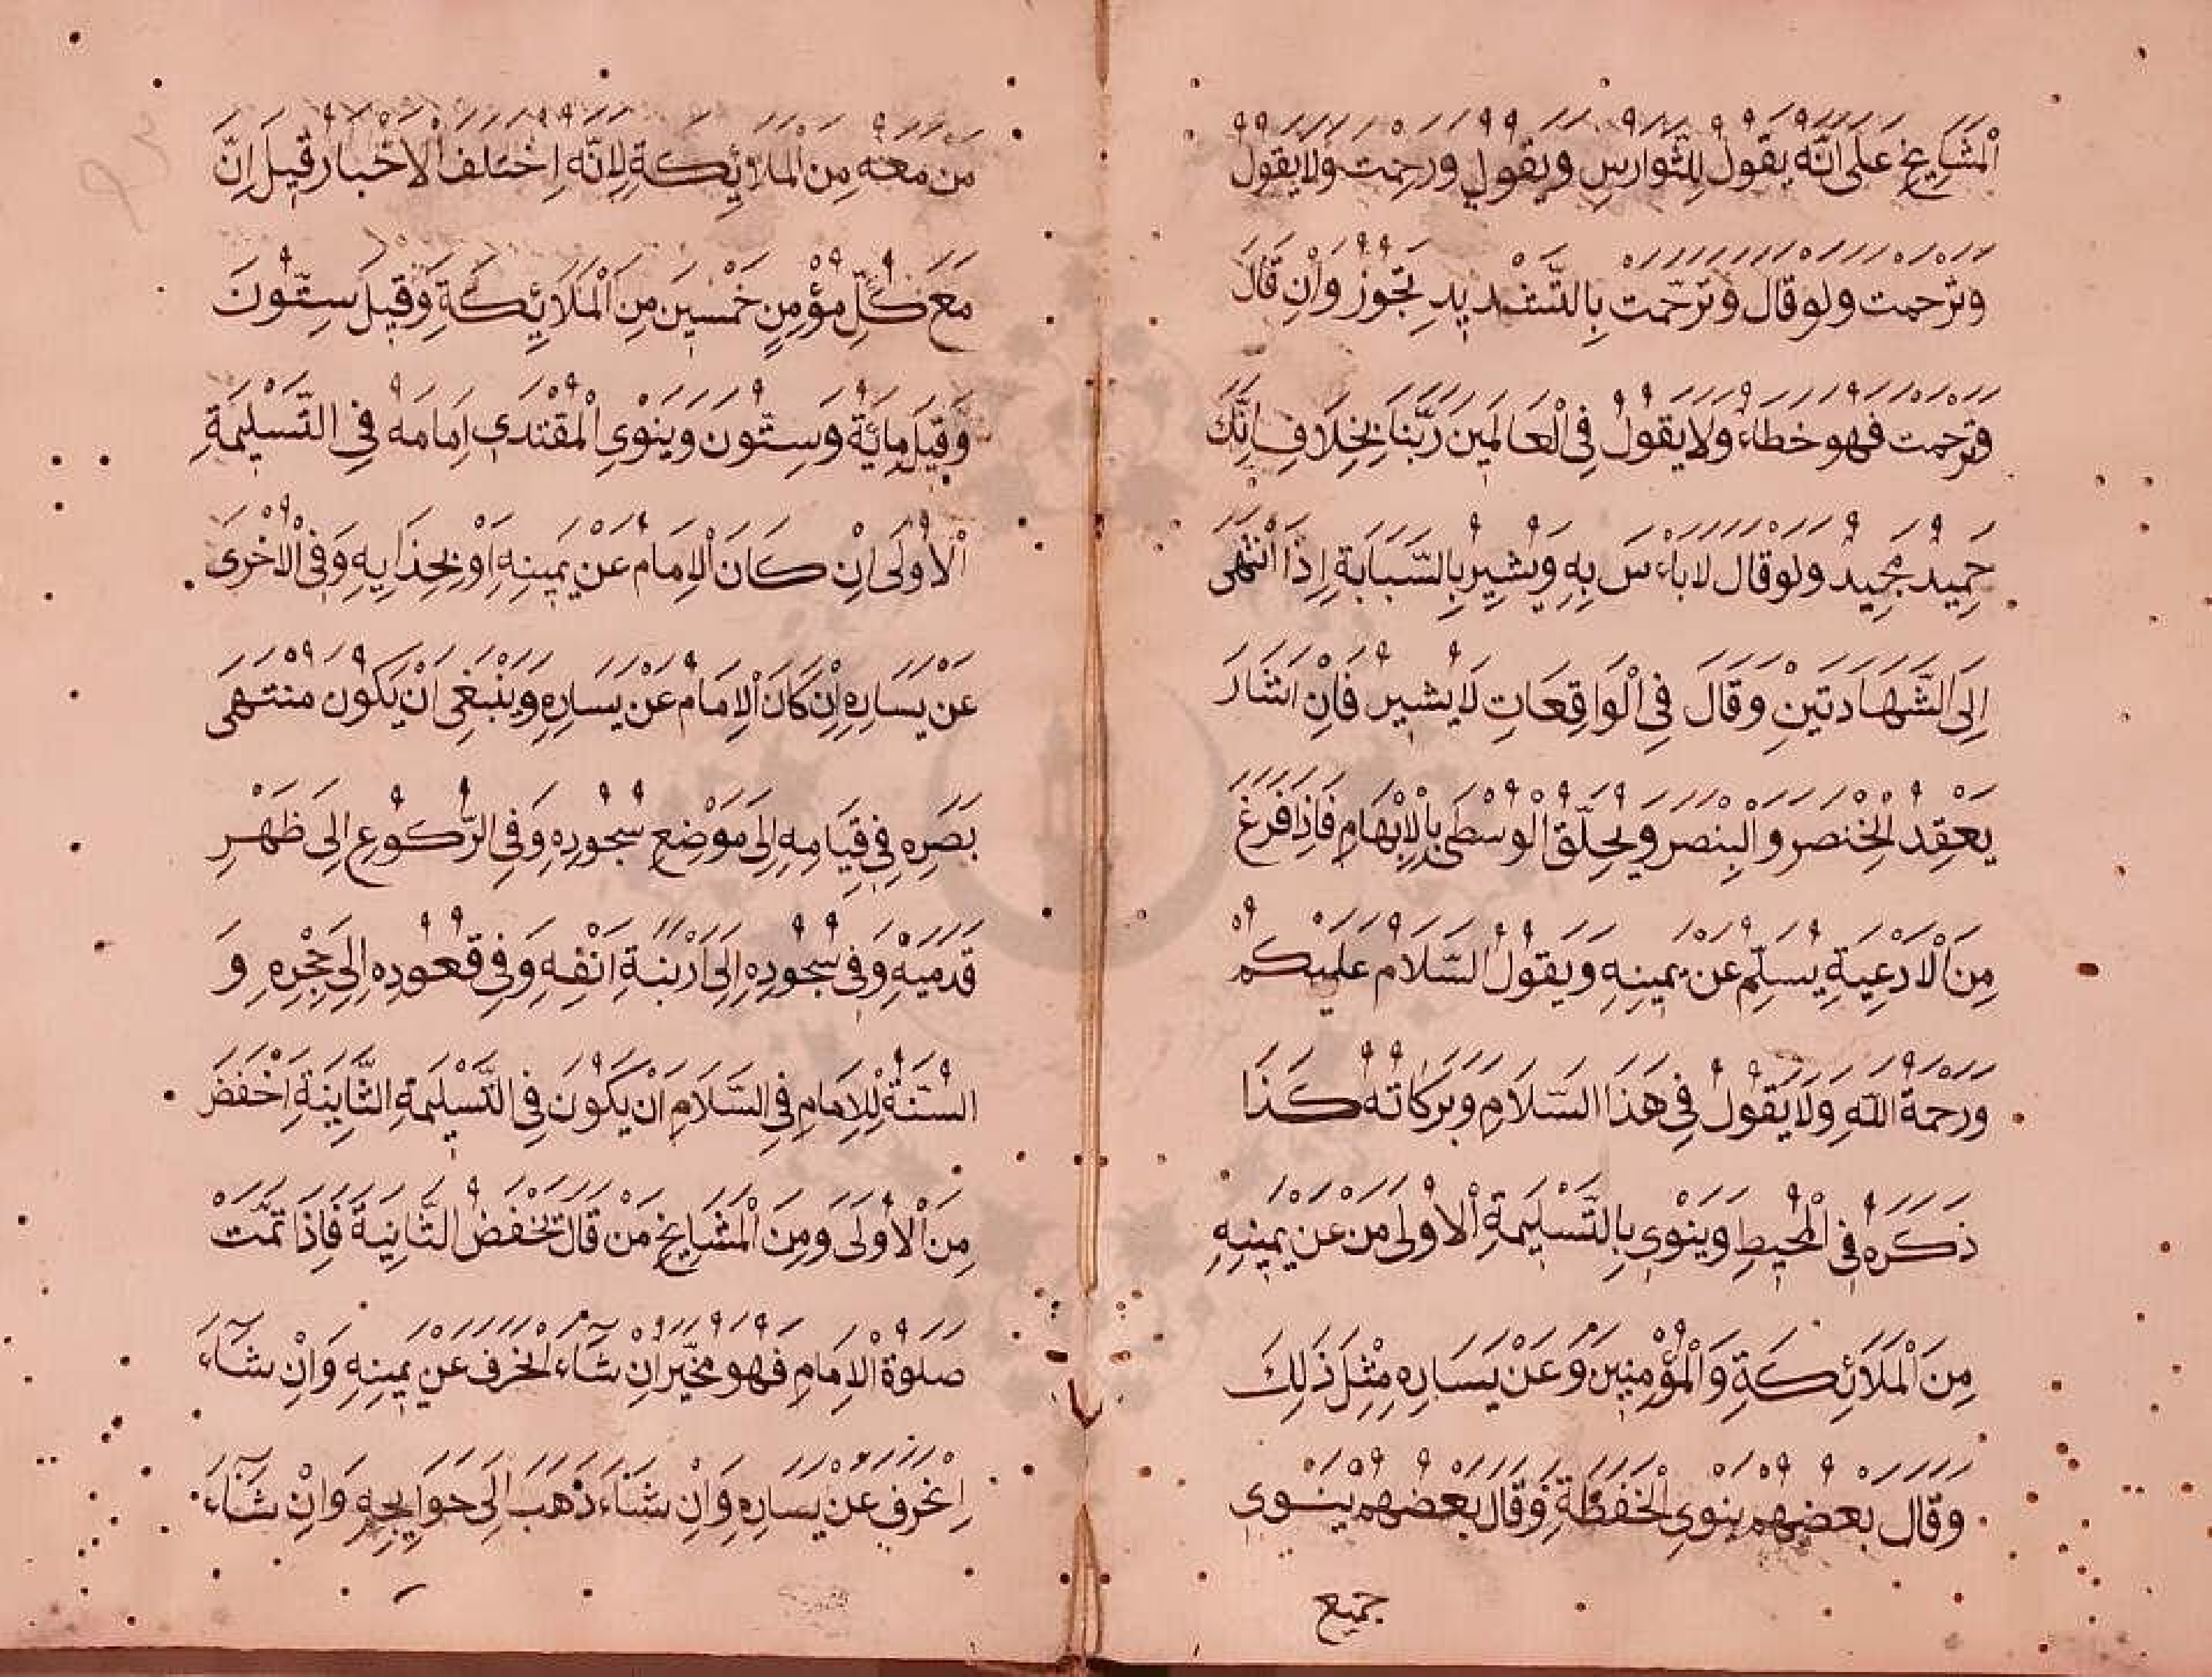 المَشَايِخِ عَلَى انَّه يقول لِلتَّوارسِ ويقول ورحمت ولا يقول
وترحمت ولو قال وترحّمت بِالتَّشديدِ يجُوزُ وَاِن قَالَ
وترحمت فهو خطاء ولا يقول فِى الْعَالَمِين رَبَّنَا بِخِلَافِ اِنَّكَ
حَمِيدٌ مَجِيدٌ ولو قال لا باءس بِهِ وَيُشِيرُ بِالسَّبَابَةِ اِذَا انْتَهَى
اِلَى الشَّهَادَتَيْنِ وَقَالَ فِى الْوَاقِعَاتِ لَا يُشِيرُ فَاِنْ اشَارَ
يَعْقِدُ الْخِنْصِر وَالْبِنْصِر وَيُحلّق الْوُسْطَى بِالْاِبْهَامِ فَاِذَا فَرَغَ
مِنَ الْادْعِيَةِ يُسَلِّم عَنْ يَمِينِهِ وَيَقُولُ السَّلَام عليكم
ورحمة اللهِ وَلَا يَقُولُ فِى هَذَا السَّلَامِ وَبَرَكَاتُهُ كَذَا
ذَكَرَهُ فِى الْمُحِيطِ وَيَنْوِى بِالتَّسْلِيمَةِ الْاُولَى مَن عَنْ يَمِينِهِ
مِنَ الْمَلَائِكَةِ وَالْمُؤْمِنِينَ وَعَنْ يَسَارِهِ مِثْلَ ذَلِكَ
وَقَالَ بَعْضُهُم يَنْوِى الْحَفَظَةِ وَقَالَ بَعْضُهُم يَنْوِى
جميع
مَن مَعَهُ مِنَ الْمَلَائِكَةِ لِاَنَّهُ اِخْتَلَفَ الْاَخْبَارُ قِيلَ اِنَّ
مَعَ كُلِّ مُؤْمِنٍ خَمْسِينَ مِنَ الْمَلَائِكَةِ وَقِيلَ سِتُّونَ
وَقِيلَ مِايَةٌ وَسِتُّون وَيَنْوِى الْمُقْتَدِى اِمَامَهُ فِى التَّسْلِيمَةِ
الْاُولَى اِنْ كَانَ الْاِمَام عَنْ يَمِينِهِ اَوْ بِحِذَايِهِ وَفِى الْاُخْرَى
عَنْ يَسَارِهِ اِنْ كَانَ الْاِمَامُ عَنْ يَسَارِهِ وَيَنْبَغِى اَنْ يَكُون مُنْتَهَى
بَصَرِهِ فِى قِيَامِهِ اِلَى مَوْضِعِ سُجُودِهِ وَفِى الرُّكُوعِ اِلَى ظَهْرِ
قَدَمَيْهِ وَفِى سُجُودِهِ اِلَى اَرْنَبَةِ اَنْفِهِ وَفِى قُعُودِهِ اِلَى حِجْرِهِ وَ
السُّنَّةُ لِلْاِمَامِ فِى السَّلَامِ اَنْ يَكُونَ فِى التَّسْلِيمَةِ الثَّانِيَةِ اَخْفَضَ
مِنَ الْاُولَى وَمِنَ الْمَشَايِخِ مَنْ قَالَ تخفضُ الثَّانِيَةَ فَاِذَا تَمَّتْ
صَلَوٰةُ الْاِمَامِ فَهُوَ مُخَيَّر اِنْ شَاءَ انحَرَفَ عَنْ يَمِينِهِ وَاِنْ شَاءَ
اِنْحَرَفَ عَنْ يَسَارِهِ وَاِنْ شَاءَ ذَهَبَ اِلَى حَوَايِجِهِ وَاِنْ شَاءَ